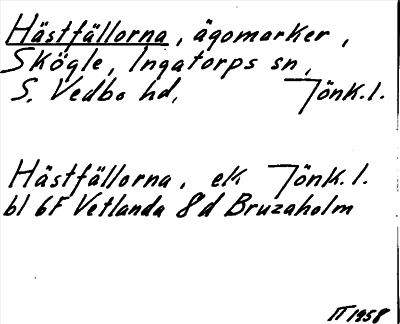 Hästfällorna, ägomarker,
Skögle, Ingatorps sn,
S. Vedbo hd, Jönk.l.
Hästfällorna, ek Jönk.l.
bl 6F Vetlanda 8d Bruzaholm
IT 1958